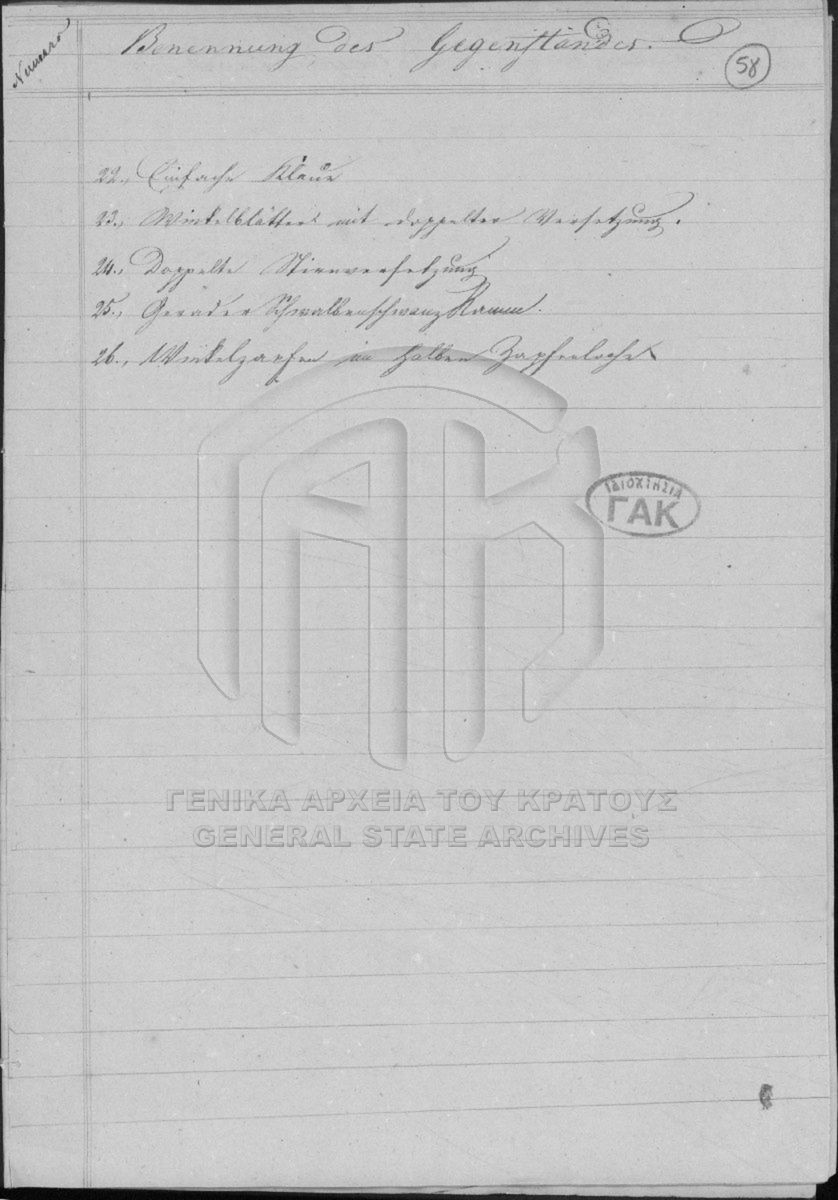 Numero
Benennung des Gegenstandes.
58
22., Einfache Klaue
23., Winkelblätter mit doppelter Versetzung.
24., Doppelte Stirnversetzung
25., Gerader Schwalbenschwanz Kamm.
26., Winkelzapfen im halben Zapfenloche
ΙΔΙΟΚΤΗΣΙΑ
ΓΑΚ
ΓΕΝΙΚΑ ΑΡΧΕΙΑ ΤΟΥ ΚΡΑΤΟΥΣ
GENERAL STATE ARCHIVES